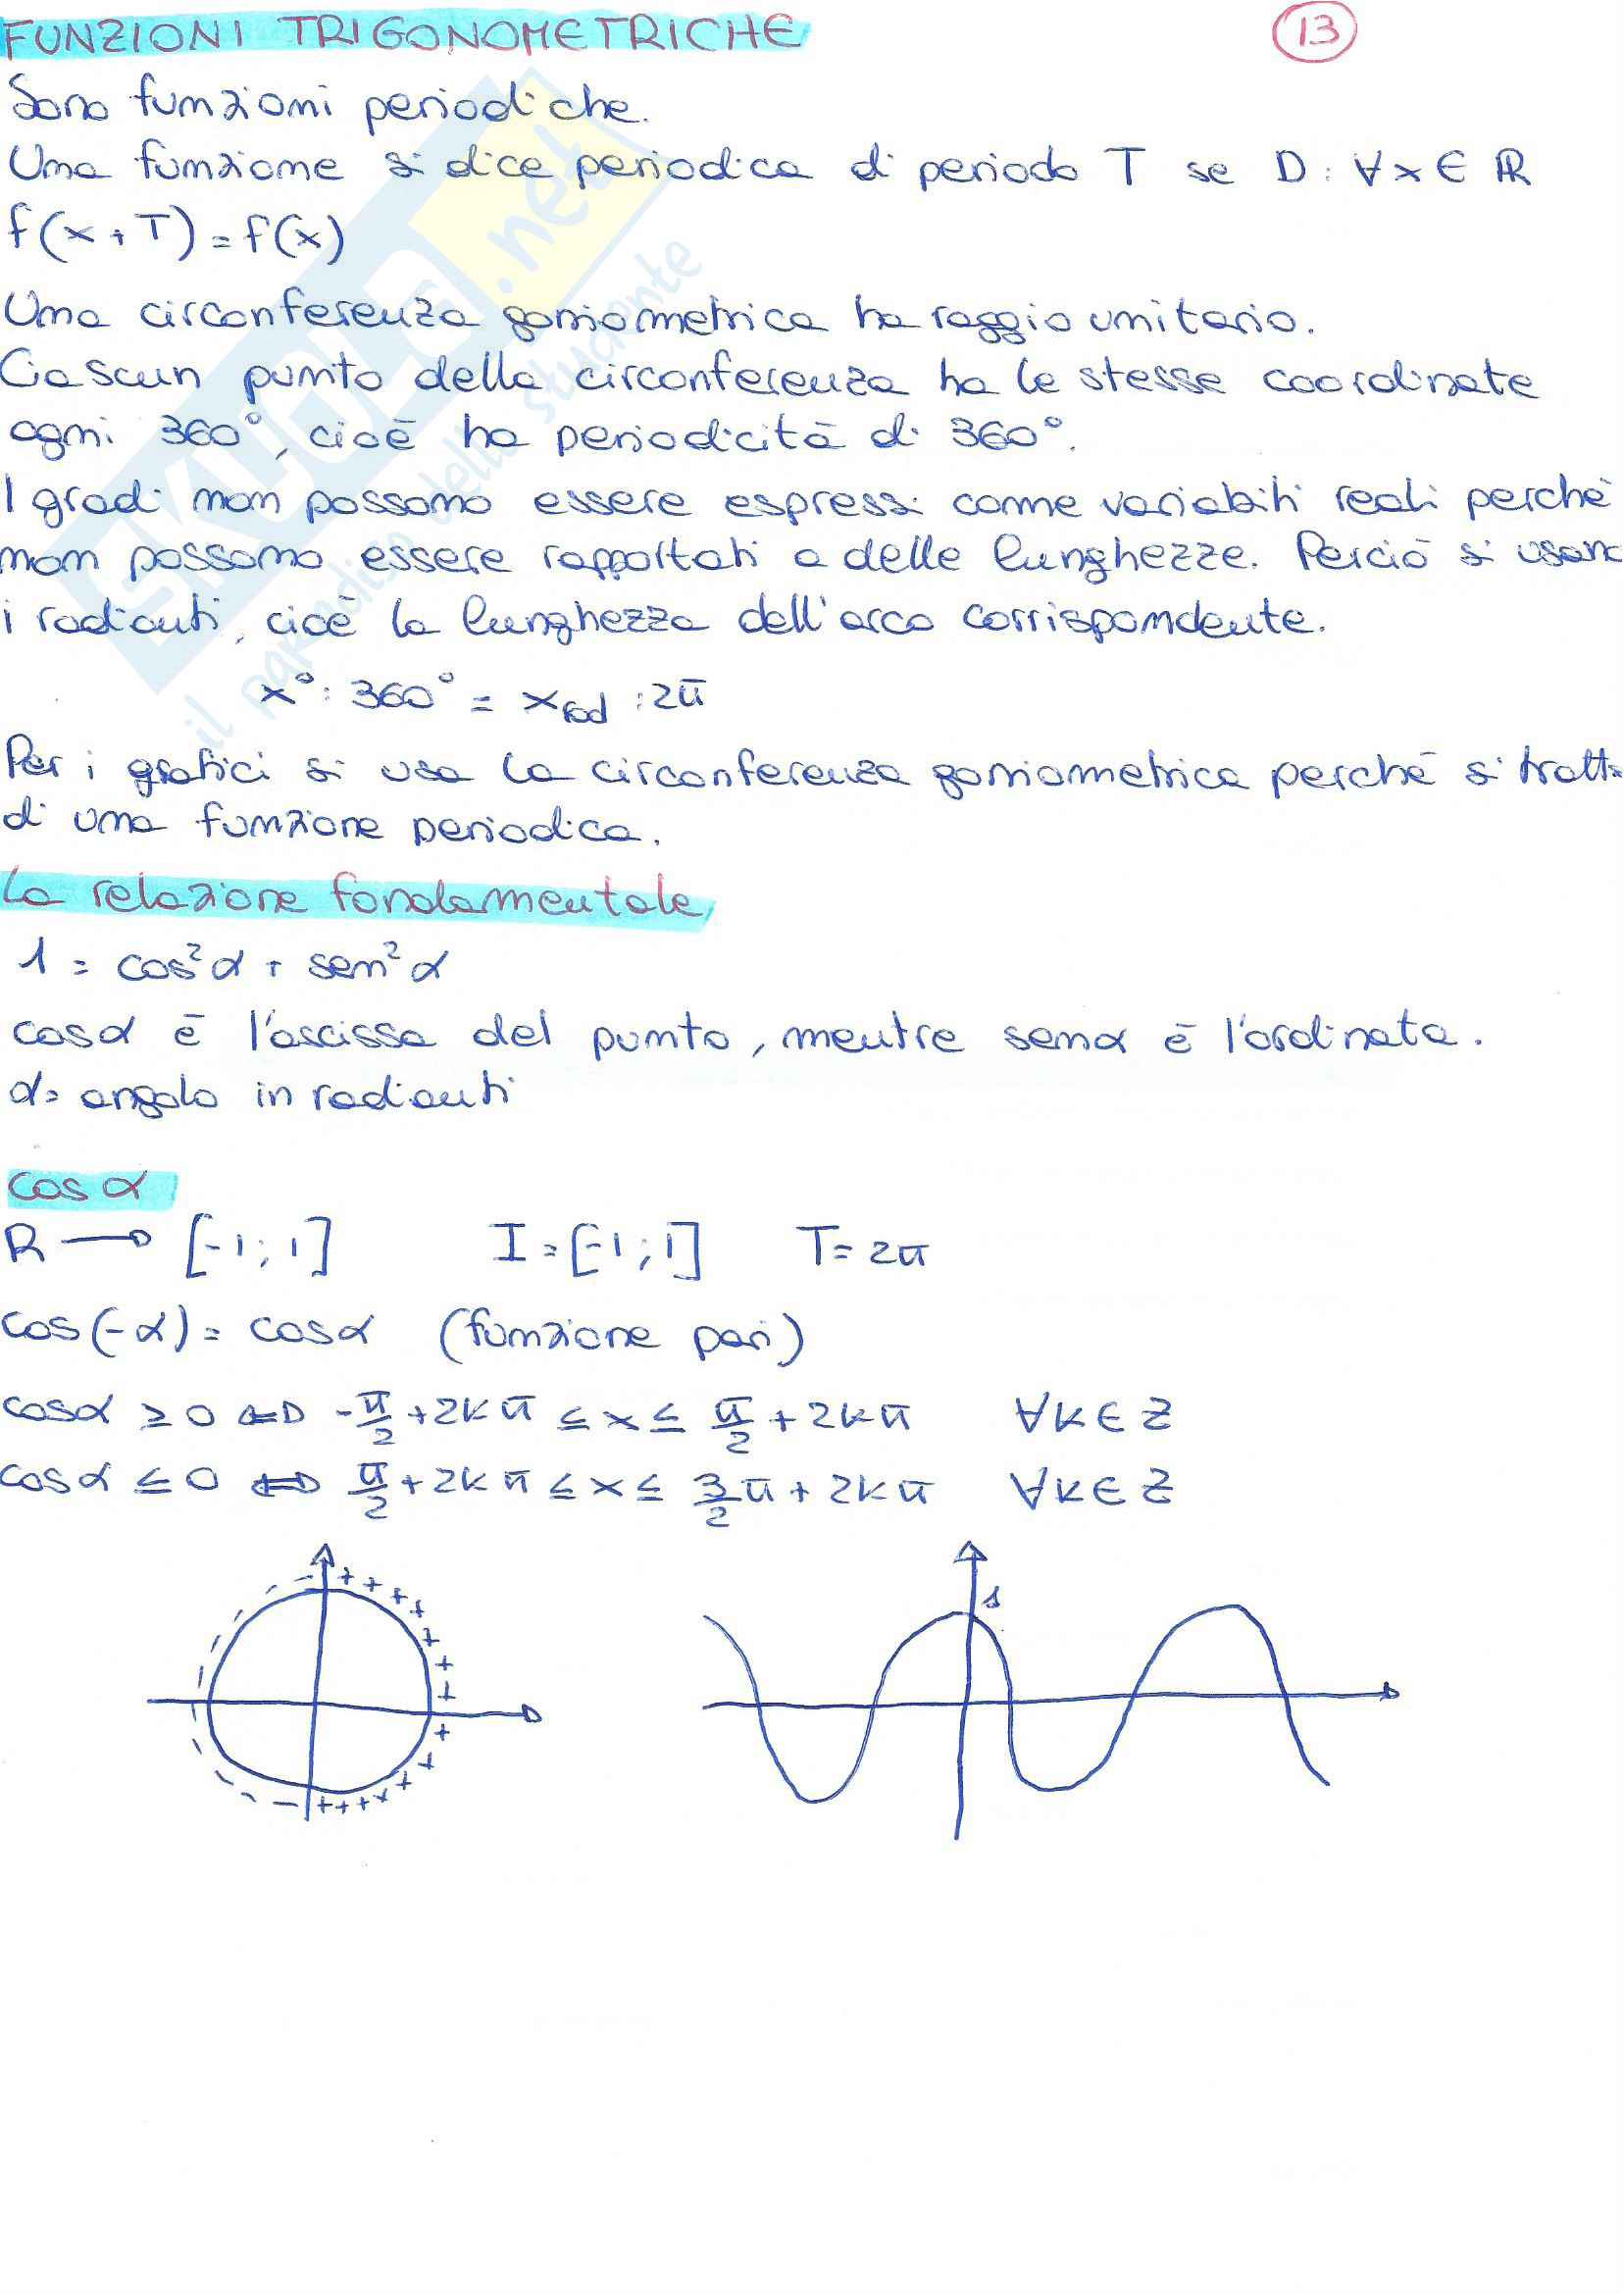 FUNZIONI TRIGONOMETRICHE 13
Sono funzioni periodiche.
Una funzione si dice periodica di periodo T se D: ∀x∈ℝ
f(x+T)=f(x)
Una circonferenza goniometrica ha raggio unitario.
Ciascun punto della circonferenza ha le stesse coordinate
ogni 360°, cioè ha periodicità di 360°.
I gradi non possono essere espressi come variabili reali perché
non possono essere rapportati a delle lunghezze. Perciò si usano
i radianti, cioè la lunghezza dell'arco corrispondente.
x° : 360° = x rad : 2π
Per i grafici si usa la circonferenza goniometrica perché si tratta
di una funzione periodica.
La relazione fondamentale
1 = cos²α + sen²α
cosα è l'ascissa del punto, mentre senα è l'ordinata.
α= angolo in radianti
cos α
R → [-1; 1] I = [-1; 1] T= 2π
cos(-α) = cosα (funzione pari)
cosα ≥ 0 ⇔ -π/2 + 2kπ ≤ x ≤ π/2 + 2kπ ∀k∈Z
cosα ≤ 0 ⇔ π/2 + 2kπ ≤ x ≤ 3/2 π + 2kπ ∀k∈Z
1
SKUOLA.net
il paradiso dello studente